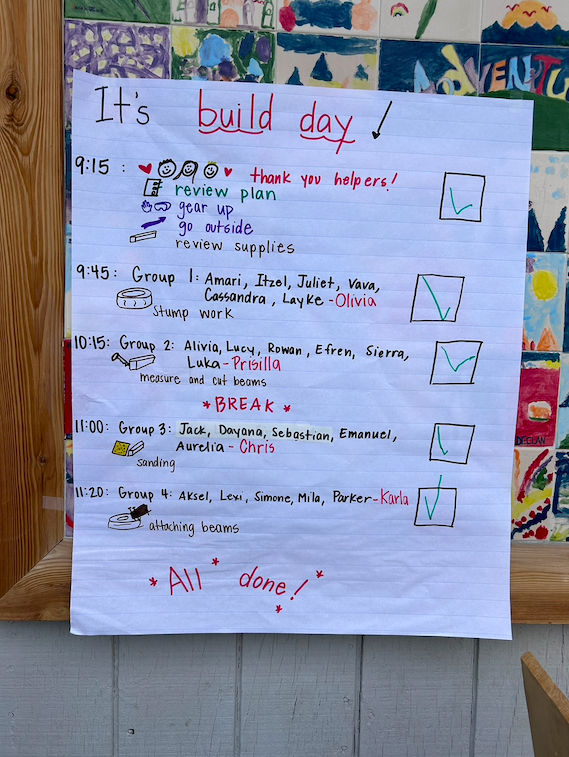 It's build day!
9:15 : thank you helpers!
review plan
gear up
go outside
review supplies
9:45: Group 1: Amari, Itzel, Juliet, Vava,
Cassandra, Layke - Olivia
Stump work
10:15: Group 2: Alivia, Lucy, Rowan, Efren, Sierra,
Luka - Prisilla
measure and cut beams
* BREAK *
11:00: Group 3: Jack, Dayana, Sebastian, Emanuel,
Aurelia - Chris
sanding
11:20: Group 4: Aksel, Lexi, Simone, Mila, Parker - Karla
attaching beams
* All * done! *
*
ADVENTU
DECLAN